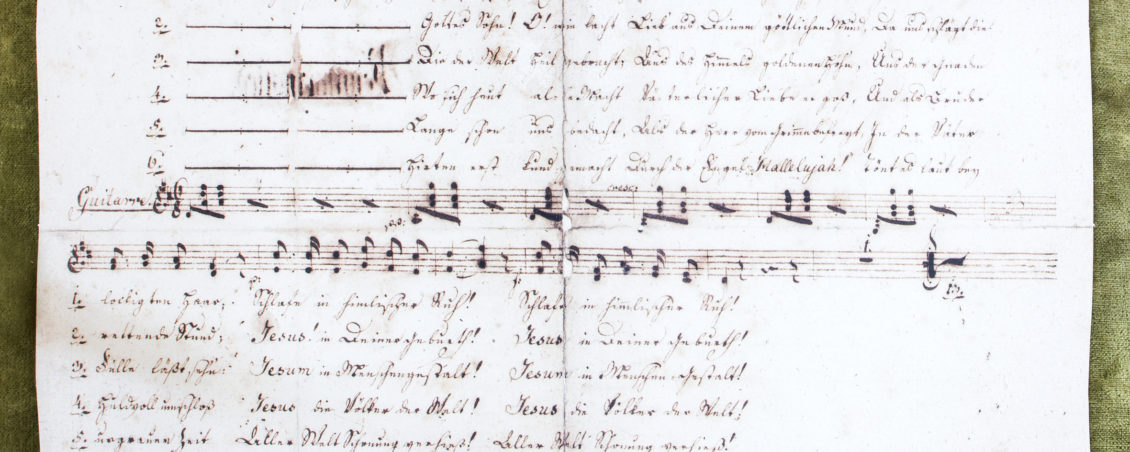 2. Gottes Sohn! O! wie lacht Lieb aus Deinem göttlichen Mund, Da uns schlägt die
3. Die der Welt Heil gebracht, Aus des Himmels goldenen Höhn, Uns der Gnaden
4. Wo sich heut alle Macht Väterlicher Liebe ergoß, Und als Bruder
5. Lange schon uns bedacht, Als der Herr vom Grimme befreyt, In der Väter
6. Hirten erst kund gemacht Durch der Engel Hallelujah! Tönt es laut bey
Guitarre.
cresc:
1. lockigten Haar; Schlafe in himlischer Ruh! Schlafe in himmlischer Ruh!
2. rettende Stund; Jesus! in Deiner Geburth! Jesus in Deiner Geburth!
3. Fülle läßt sehn: Jesum in Menschengestalt! Jesum in Menschen-Gestalt!
4. Huldvoll umschloß Jesus die Völker der Welt! Jesus die Völker der Welt!
5. urgrauer Zeit Aller Welt Schonung verhieß! Aller Welt Schonung verhieß!